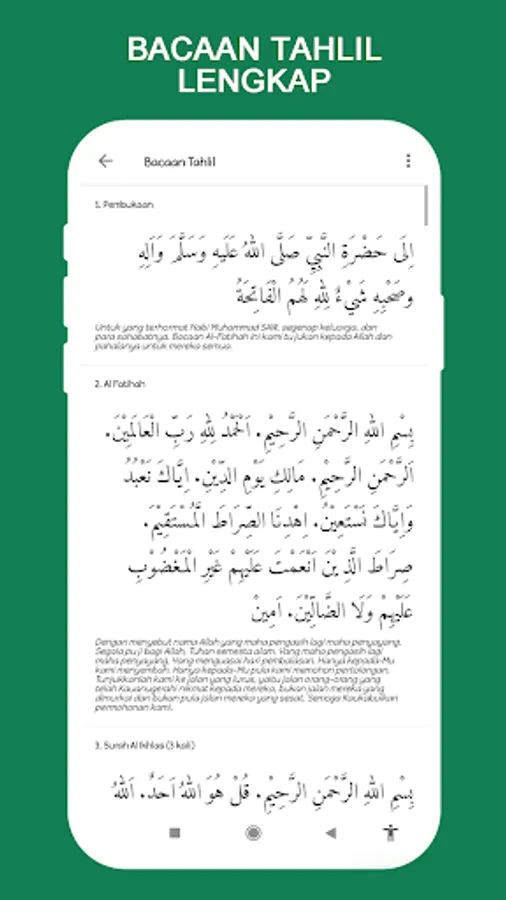 BACAAN TAHLIL
LENGKAP
Bacaan Tahlil
1. Pembukaan
اِلَى حَضْرَةِ النَّبِيِّ صَلَّى اللهُ عَلَيْهِ وَسَلَّمَ وَاٰلِهِ
وصَحْبِهِ شَيْءٌ لِلهِ لَهُمُ الْفَاتِحَةُ
Untuk yang terhormat Nabi Muhammad SAW, segenap keluarga, dan
para sahabatnya. Bacaan Al-Fatihah ini kami tujukan kepada Allah dan
pahalanya untuk mereka semua.
2. Al Fatihah
بِسْمِ اللهِ الرَّحْمَنِ الرَّحِيْمِ. اَلْحَمْدُ لِلهِ رَبِّ الْعَالَمِيْنَ.
اَلرَّحْمَنِ الرَّحِيْمِ. مَالِكِ يَوْمِ الدِّيْنِ. اِيَّاكَ نَعْبُدُ
وَاِيَّاكَ نَسْتَعِيْنُ. اِهْدِنَا الصِّرَاطَ الْمُسْتَقِيْمَ.
صِرَاطَ الَّذِيْنَ اَنْعَمْتَ عَلَيْهِمْ غَيْرِ الْمَغْضُوْبِ
عَلَيْهِمْ وَلَا الضَّالِّيْنَ. اٰمِيْنْ
Dengan menyebut nama Allah yang maha pengasih lagi maha penyayang.
Segala puji bagi Allah, Tuhan semesta alam. Yang maha pengasih lagi
maha penyayang. Yang menguasai hari pembalasan. Hanya kepada-Mu
kami menyembah. Hanya kepada-Mu pula kami memohon pertolongan.
Tunjukkanlah kami ke jalan yang lurus, yaitu jalan orang-orang yang
telah Kauanugerahi nikmat kepada mereka, bukan jalan mereka yang
dimurkai dan bukan pula jalan mereka yang sesat. Semoga Kaukabulkan
permohonan kami.
3. Surah Al Ikhlas (3 kali)
بِسْمِ اللهِ الرَّحْمَنِ الرَّحِيْمِ. قُلْ هُوَ اللهُ اَحَدٌ. اَللهُ